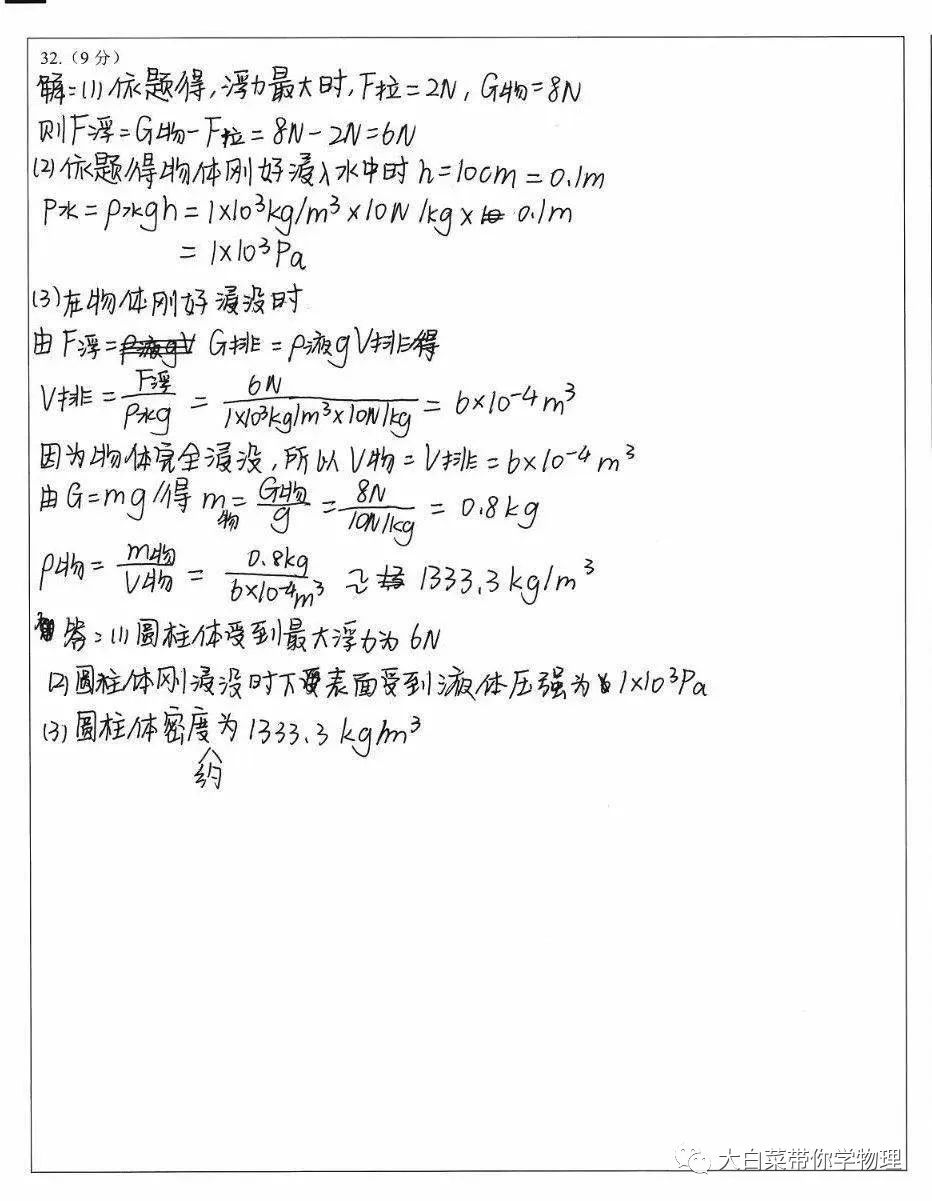 32.（9 分）
解：(1) 依题得，浮力最大时，F拉=2N，G物=8N
则F浮=G物-F拉=8N-2N=6N
(2) 依题得物体刚好浸入水中时 h=10cm=0.1m
P水=ρ水gh=1×10³kg/m³×10N/kg×0.1m
=1×10³Pa
(3) 在物体刚好浸没时
由F浮=G排=ρ液gV排得
V排=F浮/ρ水g=6N/1×10³kg/m³×10N/kg=6×10⁻⁴m³
因为物体完全浸没，所以V物=V排=6×10⁻⁴m³
由G=mg得 m物=G物/g=8N/10N/kg=0.8kg
ρ物=m物/V物=0.8kg/6×10⁻⁴m³≈1333.3kg/m³
答：(1) 圆柱体受到最大浮力为6N
(2) 圆柱体刚浸没时下表面受到液体压强为1×10³Pa
(3) 圆柱体密度约为1333.3kg/m³
大白菜带你学物理